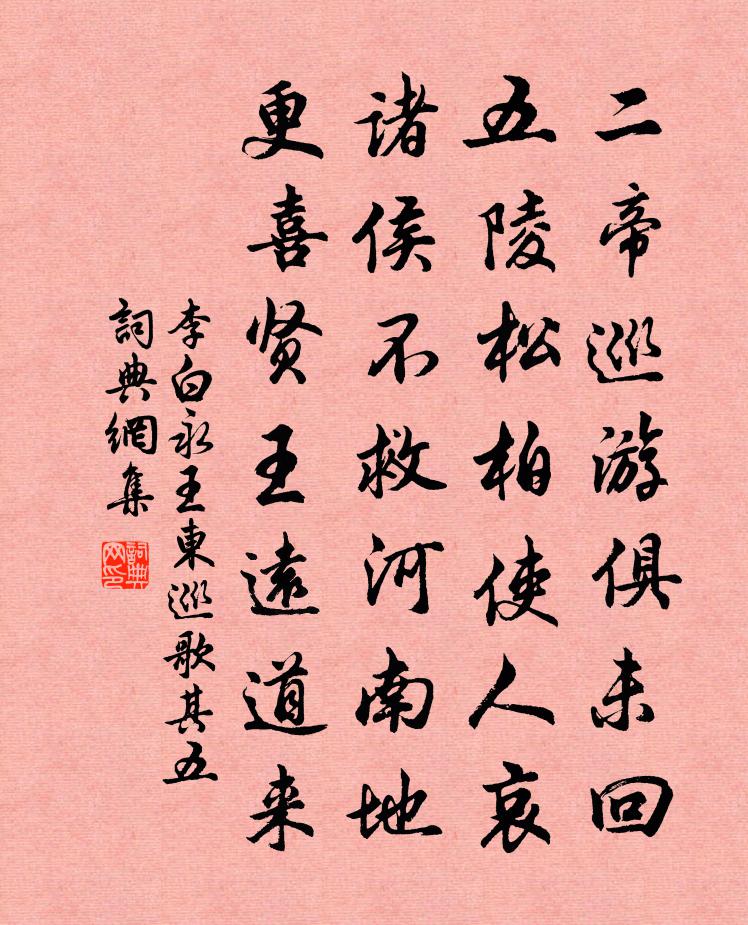 二帝巡游俱未回
五陵松柏使人哀
诸侯不救河南地
更喜贤王遠道来
李白永王東巡歌其五
詞典網集
詞典网印